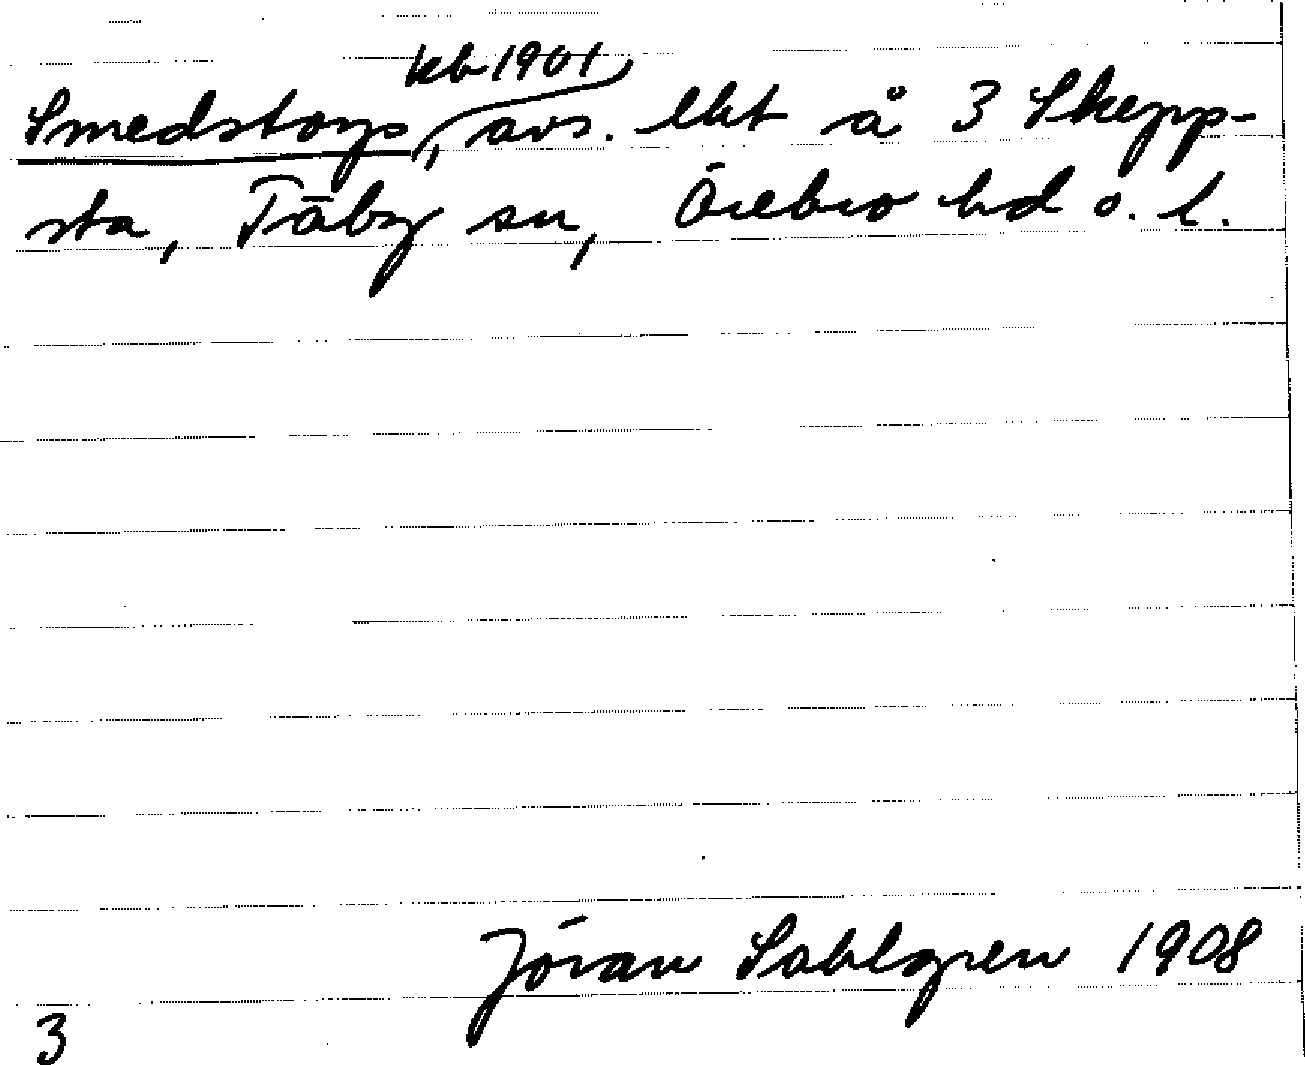 kb 1901
Smedstorp, avs. lht å 3 Skepp-
sta, Täby sn, Örebro hd o. l.
Jöran Sahlgren 1908
3